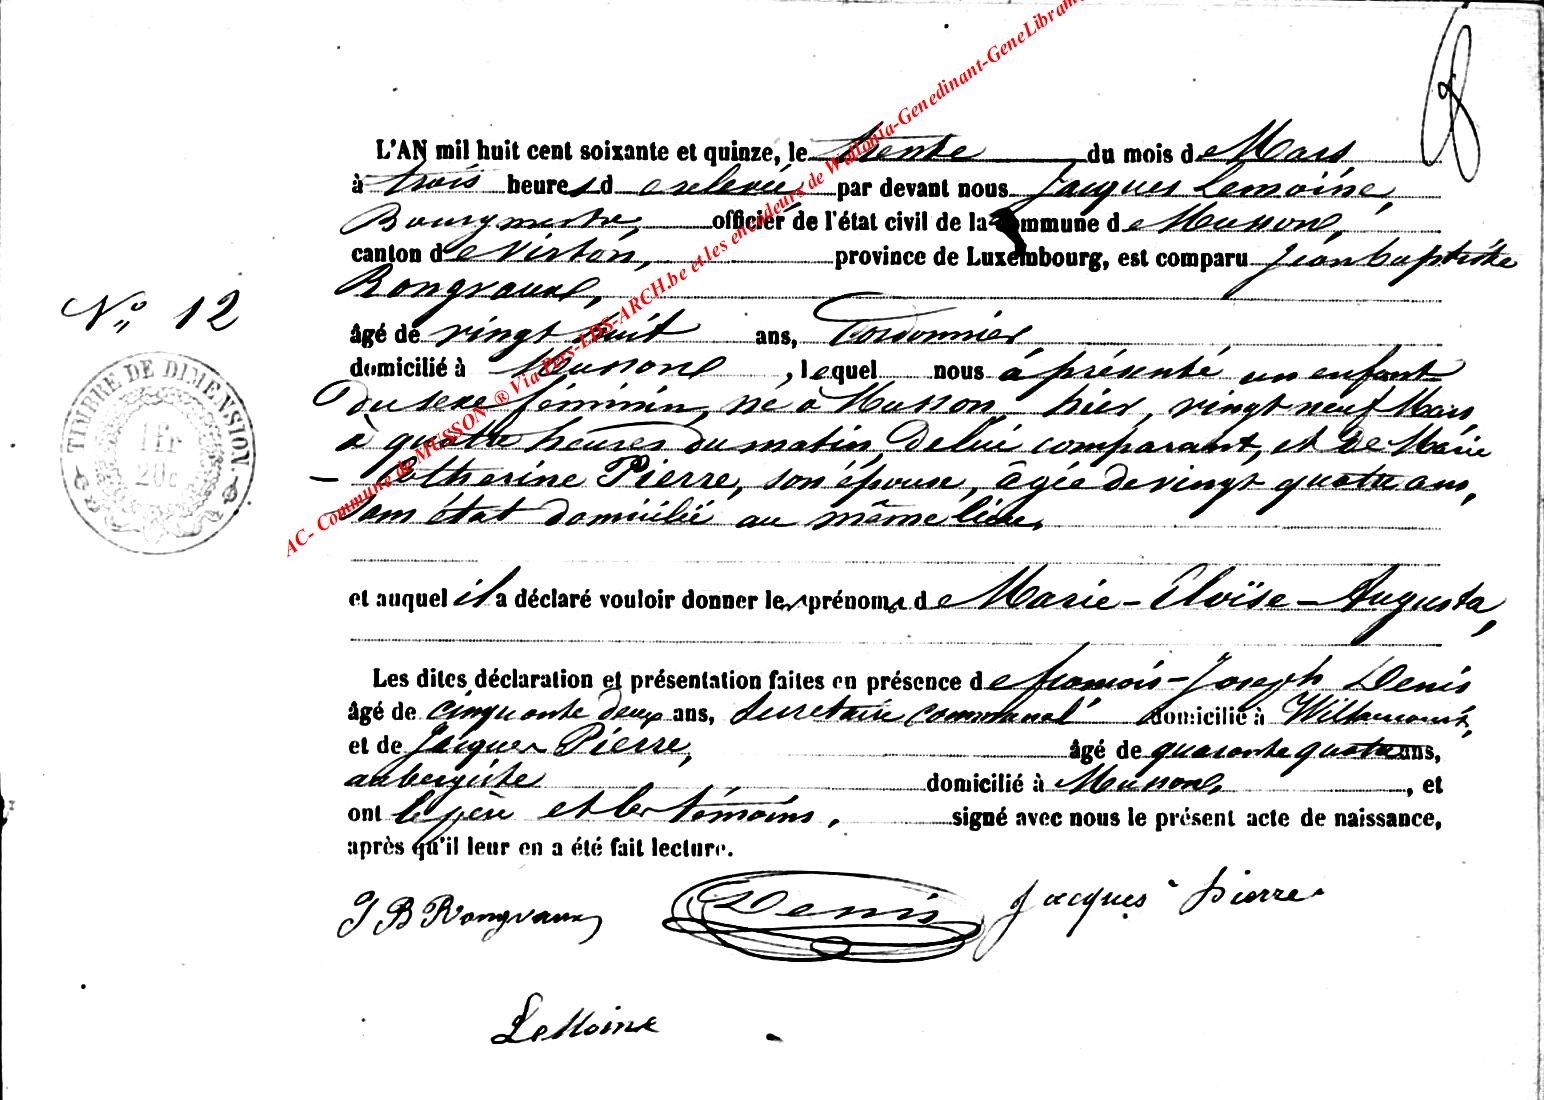 8
L'AN mil huit cent soixante et quinze, le trente du mois de Mars
à trois heures de relevée par devant nous Jacques Lemoine,
Bourgmestre, officier de l'état civil de la commune de Musson,
canton de Virton, province de Luxembourg, est comparu Jean baptiste
Rongvaux,
N° 12
âgé de vingt huit ans, Cordonnier
domicilié à Musson, lequel nous à présenté un enfant
du sexe féminin, né à Musson hier, vingt neuf Mars,
à quatre heures du matin, de lui comparant, et de Marie
- Catherine Pierre, son épouse, âgée de vingt quatre ans,
sans état domiciliée au même lieu,
et auquel il a déclaré vouloir donner les prénoms de Marie-Eloïse-Augusta,
Les dites déclaration et présentation faites en présence de françois-Joseph Denis
âgé de cinquante deux ans, Secretaire communal domicilié à Willancourt,
et de Jacques Pierre, âgé de quarante quatre ans,
aubergiste domicilié à Musson, et
ont le père et les témoins, signé avec nous le présent acte de naissance,
après qu'il leur en a été fait lecture.
J B Rongvaux Denis Jacques Pierre
LeMoine
TIMBRE DE DIMENSION.
1fr
20c
AC- Commune de MUSSON ® Via Pers-LDS-ARCH.be et les encodeurs de Wallonia-Genedinant-GeneLibram